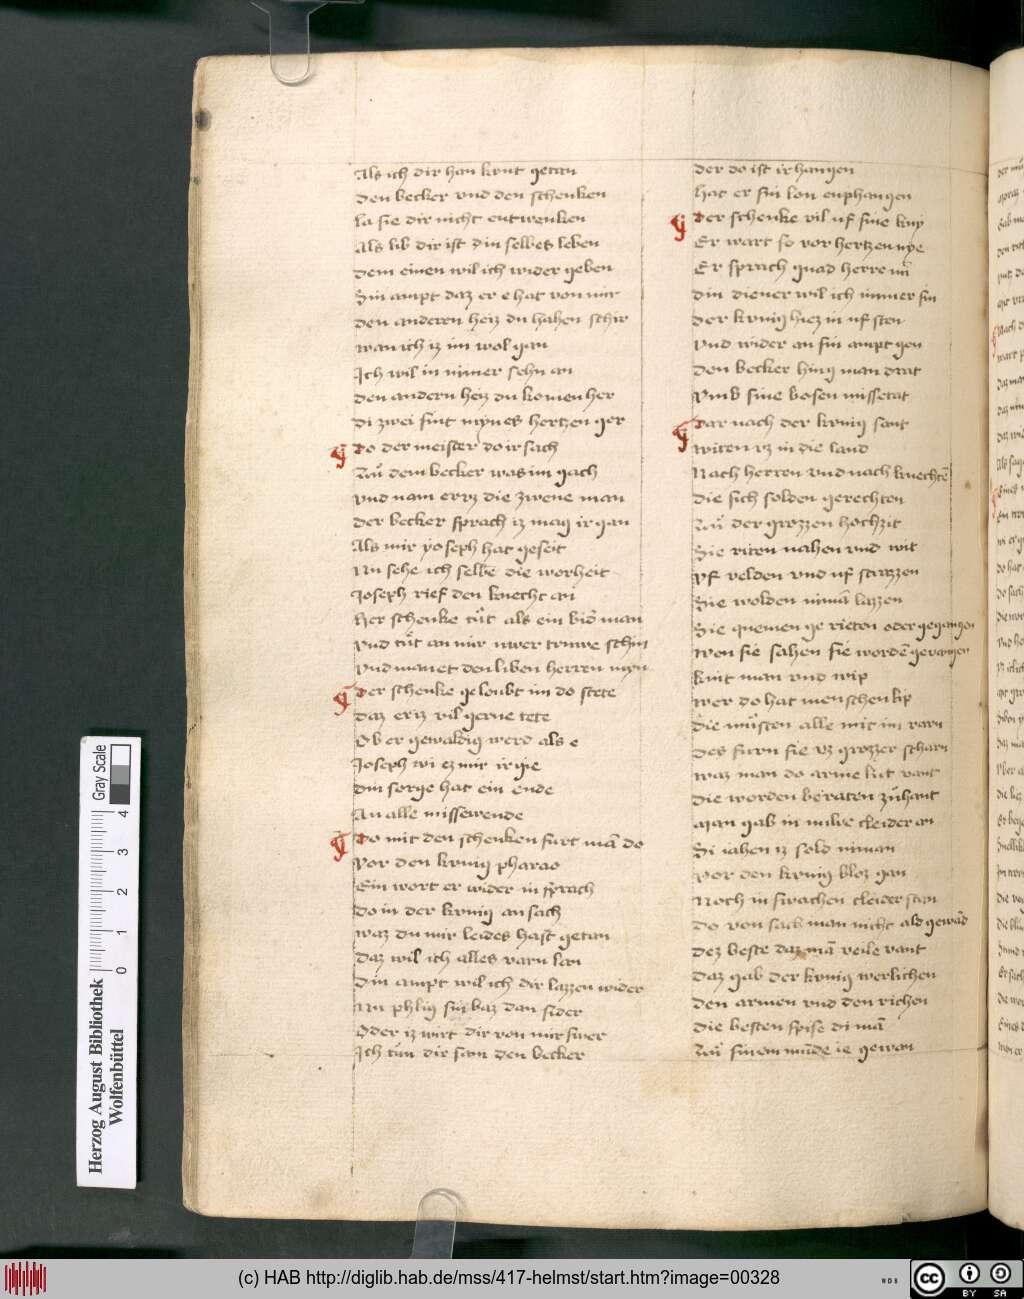 Als ich dir han kunt getan
Den becker vnd den schenken
la sie dir nicht entwenken
Als lib dir ist din selbes leben
dem einen wil ich wider geben
Sin ampt daz er e hat von mir
den anderen heiz du hahen schir
wan ich iz im wol gan
Ich wil in nimer sehn an
den andern heiz du komen her
di zwei sint mynes hertzen ger
Do der meister do ir sach
Zuͦ dem becker was im gach
vnd nam er vz die zwene man
der becker sprach iz mag ir gan
Als mir yoseph hat geseit
Nu sehe ich selbe die worheit
Joseph rief den knecht an
her schenke tuͦt als ein bid' man
vnd tuͦt an mir uwer truwe schin
vnd manet den liben herren myn
Der schenke geloubt im do stete
daz er iz vil gerne tete
Ob er gewaldig werd als e
Joseph wi ez mir irgie
din sorge hat ein ende
An alle missewende
Do mit den schenken furt mā do
vor den kvnig pharao
Ein wort er wider in sprach
do in der kvnig an sach
waz du mir leides hast getan
daz wil ich alles varn lan
Din ampt wil ich dir lazzen wider
Nu phlig fuͦrbaz dan sider
Oder iz wirt dir von mir swer
Ich tuͦn dir sam den becker
der do ist irhangen
hat er sin lon enphangen
Der schenke vil uf sine kny
Er wart so vor hertzen nye
Er sprach gnad herre mī
din diener wil ich immer sin
der kvnig hiez in uf sten
vnd wider an sin ampt gen
den becker hing man drat
vmb sine bosen missetat
Dar nach der kvnig sant
witen vz in die land
Nach herren vnd nach knechtē
die sich solden gerechten
Zuͦ der grozzen hochzit
Sie riten nahen vnd wit
vf velden vnd uf strazzen
Sie wolden nimā lazzen
Sie quemen geriten oder gegangen
wen sie sahen sie wordē gevangen
kint man vnd wip
wer do hat menschen lip
die muͦsten alle mit im varn
des furn sie vz grozzer scharn
waz man do arme lut vant
die worden beraten zuͦhant
man gab in nuwe cleider an
Si iahen iz sold niman
vor den kvnig bloz gan
Noch in swachen cleider stan
do von sach man nicht ald gewād
dez beste daz mā veile vant
daz gab der kvnig werlichen
den armen vnd den richen
die besten spise di mā
Zuͦ sinem mūde ie gewan
Herzog August Bibliothek
Wolfenbüttel
Gray Scale
0 1 2 3 4
(c) HAB http://diglib.hab.de/mss/417-helmst/start.htm?image=00328
WDB
cc BY SA